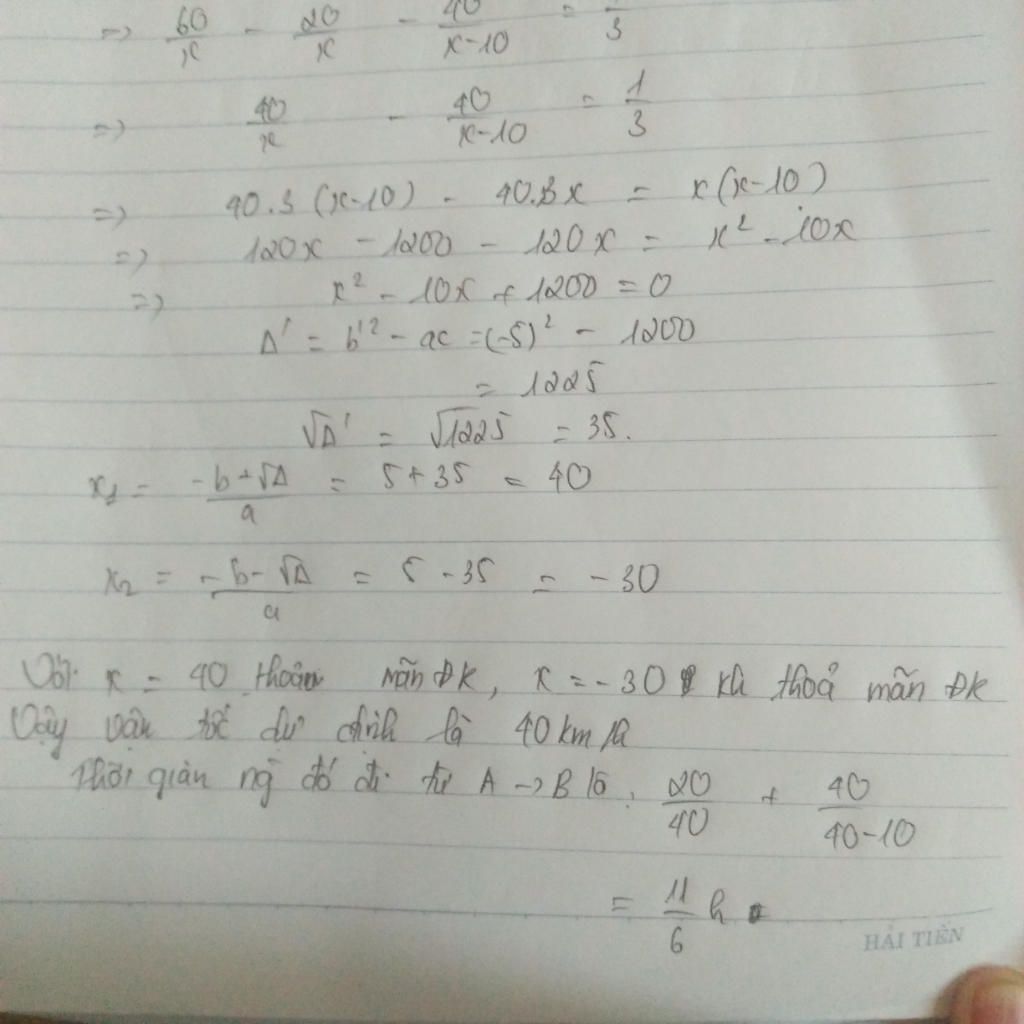 => 60/x - 20/x - 40/x-10 = /3
=> 40/x - 40/x-10 = 1/3
=> 40.3 (x-10) - 40.3x = x(x-10)
=> 120x - 1200 - 120x = x² - 10x
=> x² - 10x + 1200 = 0
Δ' = b'² - ac = (-5)² - 1200
= 1225
√Δ' = √1225 = 35.
x₁ = -b+√Δ/a = 5+35 = 40
x₂ = -b-√Δ/a = 5-35 = -30
Với x = 40 thoản mãn ĐK, x = -30 kh thoả mãn ĐK
Vậy vận tốc dự định là 40 km/h
Thời gian ng đó đi từ A -> B là : 20/40 + 40/40-10
= 11/6 h
HẢI TIẾN